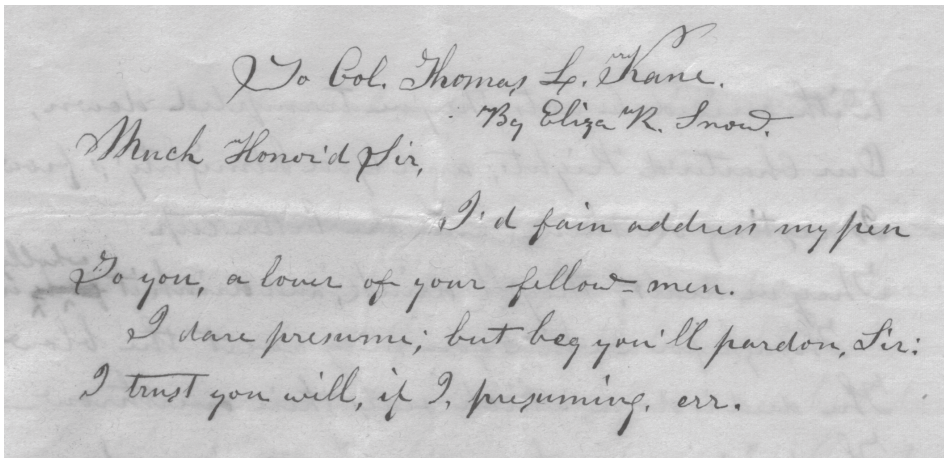 To Col. Thomas L. Kane.
By Eliza R. Snow.
Much Honor'd Sir,
I'd fain address my pen
To you, a lover of your fellow-men.
I dare presume; but beg you'll pardon, Sir:
I trust you will, if I, presuming, err.